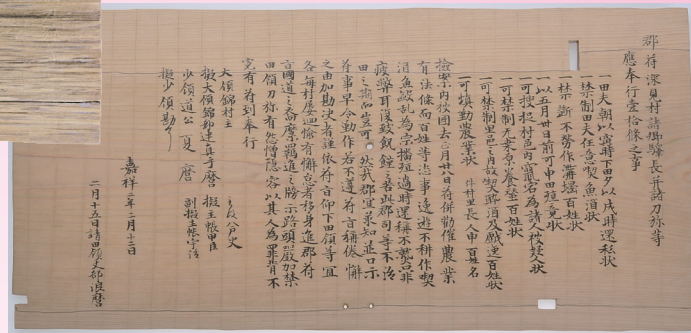 郡符深見村諸郷驛長并諸刀弥等
應奉行壹拾條之事
一田夫朝以寅時下田夕以戌時還私状
一禁制田夫任意喫魚酒状
一禁断不労作溝堰百姓状
一以五月卅日前可申田殖竟状
一可捜捉村邑内竄宕為諸人被疑人状
一可禁制无桑原養蚕百姓状
一可禁制里邑之内故喫酔酒及戯逸百姓状
一可填勤農業状 村里長人申百姓名
檢案内被國去二月廿八日符併勧催農業
有法條而百姓等恣事逸遊不耕作喫
酒魚殴乱為宗播殖過時還称不熟只非
疲弊耳復致飢饉之苦此郡司等不治
田之期而豈可然哉郡宜承知並口示
符事早令勤作若不遵符旨称倦懈
之由加勘決者謹依符旨仰下田領等宜
各毎村屡廻愉有懈怠者移身進郡符
旨國道之裔縻羈進之牓示路頭厳加禁
田領刀弥有怨憎隠容以其人為罪背不
寛宥符到奉行
大領錦村主 主政八戸史
擬大領錦部連真手麿 擬主帳甲臣
少領道公 夏麿 副擬主帳宇治
擬少領勘了
嘉祥二年二月十二日
二月十五日請田領丈部浪麿